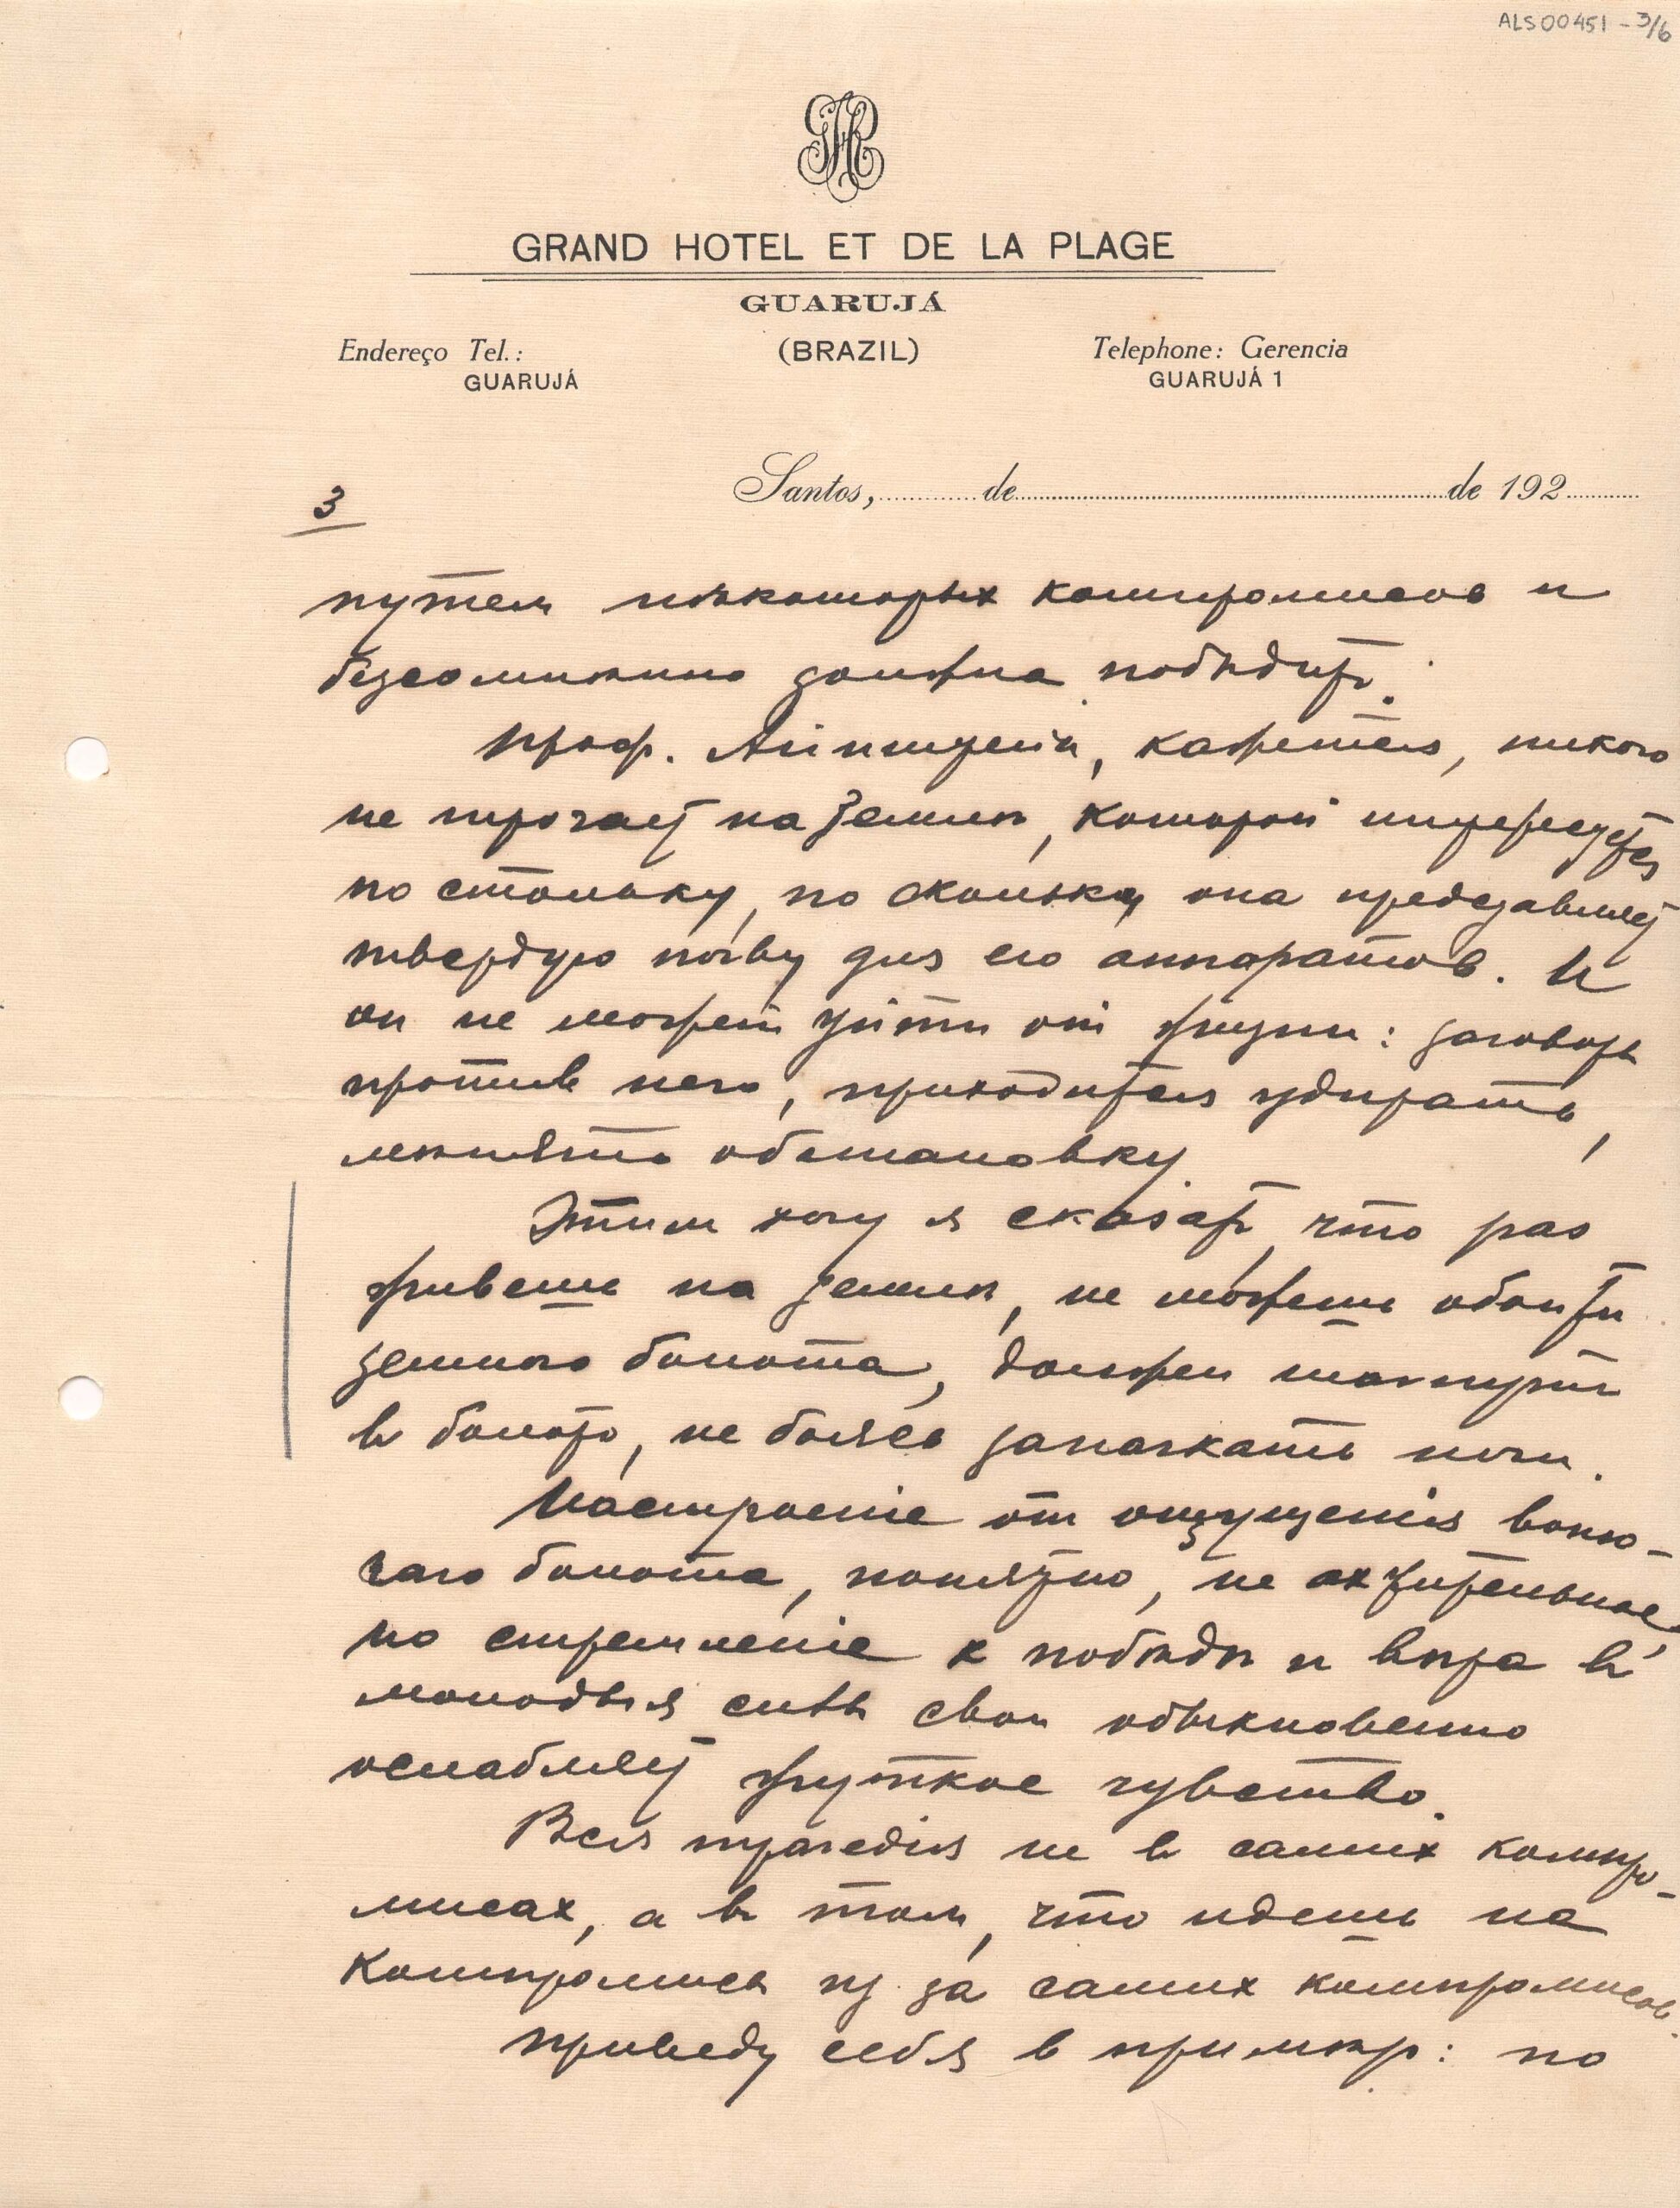 ALS00451 - 3/6
GRAND HOTEL ET DE LA PLAGE
GUARUJÁ
Endereço Tel.: (BRAZIL) Telephone: Gerencia
GUARUJÁ GUARUJÁ 1
Santos, de de 192
3
путем нѣкоторых компромисов и
безсомнѣнно должна побѣдить.
Проф. Айнштейн, кажется, никого
не трогает на землѣ, которой интересуется
по стольку, по скольку она представляет
твердую почву для его аппаратов. И
он не может уйти от жизни: заговоръ
против него, приходится удирать,
мѣнять обстановку.
Этим хочу я сказать, что раз
живешь на землѣ, не можешь обойти
земного болота, должен шагнуть
в болото, не боясь запачкать ноги.
Настроеніе от ощущенія воню-
чаго болота, понятно, не восхитительное,
но стремленіе к побѣдѣ и вѣра в
молодыя силы свои обыкновенно
ослабляет жуткое чувство.
Вся трагедія не в самих компро-
мисах, а в том, что идешь на
компромисъ из за самих компромисов.
Приведу себя в примѣр: по